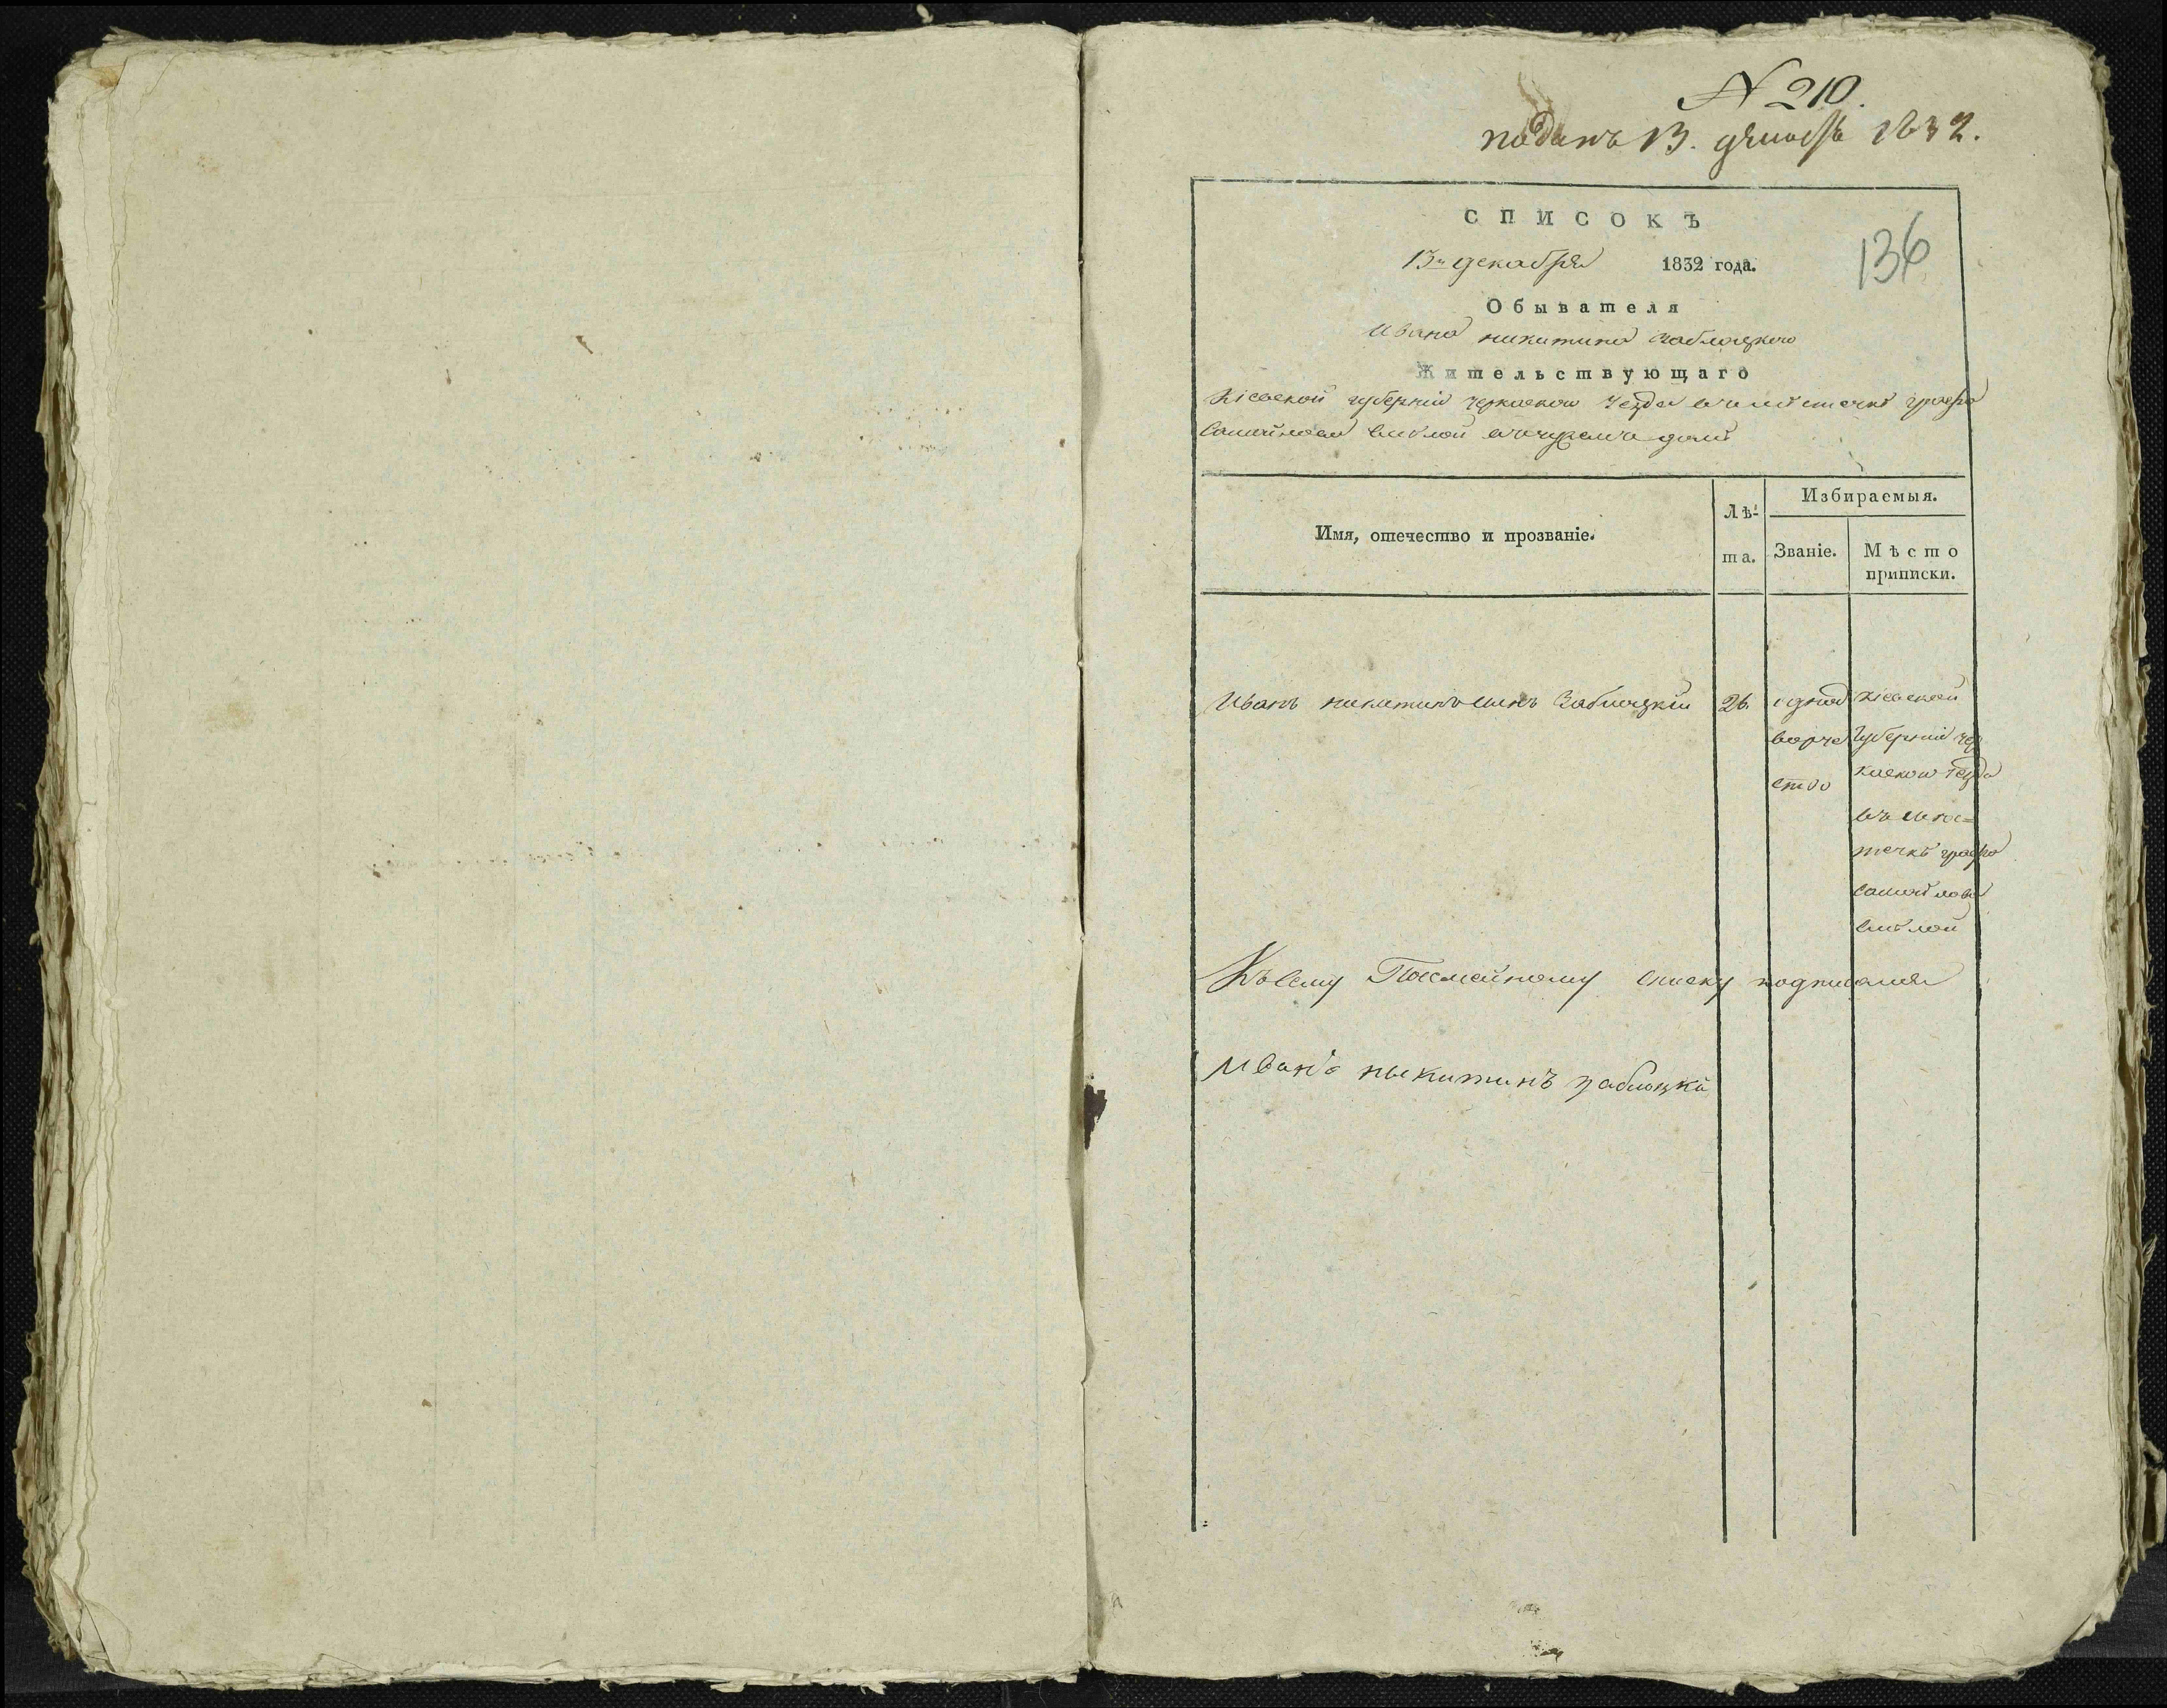 № 210.
поданъ 13. декабря 1832.
СПИСОКЪ
13го декабря 1832 года.
136
Обывателя
Ивана никитина Заблоцкого
Жительствующаго
Кіевской губерніи черкаской уезда въ местечкѣ графа
Самойлова Смѣлой въ чужомъ домѣ
Имя, отечество и прозваніе.
Лѣ-
та.
Избираемыя.
Званіе.
Мѣсто
приписки.
Иванъ никитинъ сынъ Заблоцкій 26. однод Кіевской
ворче Губерніи чер
каской уезда
ство
въ мѣс=
течкѣ графа
Самойлова
Смѣлой
Къ сему Посмейному списку подписался
Иванъ ныкитинъ заблоцкій